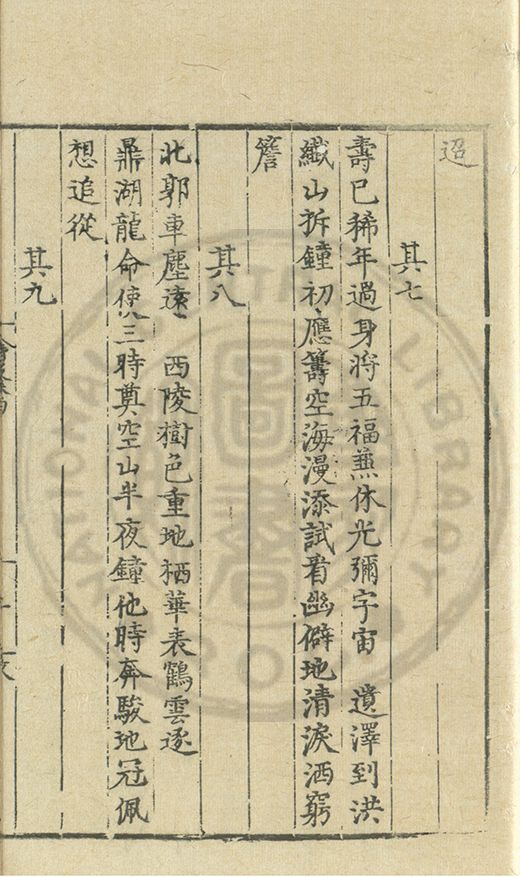 迢
其七
壽已稀年過身将五福兼休光彌宇宙　遺澤到洪
纖山拆鐘初應籌空海漫添試看幽僻地清淚洒窮
簷
其八
北郭車塵遠　西陵樹色重地栖華表鶴雲逐
鼎湖龍命使三時奠空山半夜鐘他時奔駿地冠佩
想追從
其九